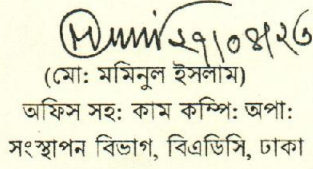 ২৭/০৪/২৬
(মো: মমিনুল ইসলাম)
অফিস সহ: কাম কম্পি: অপা:
সংস্থাপন বিভাগ, বিএডিসি, ঢাকা